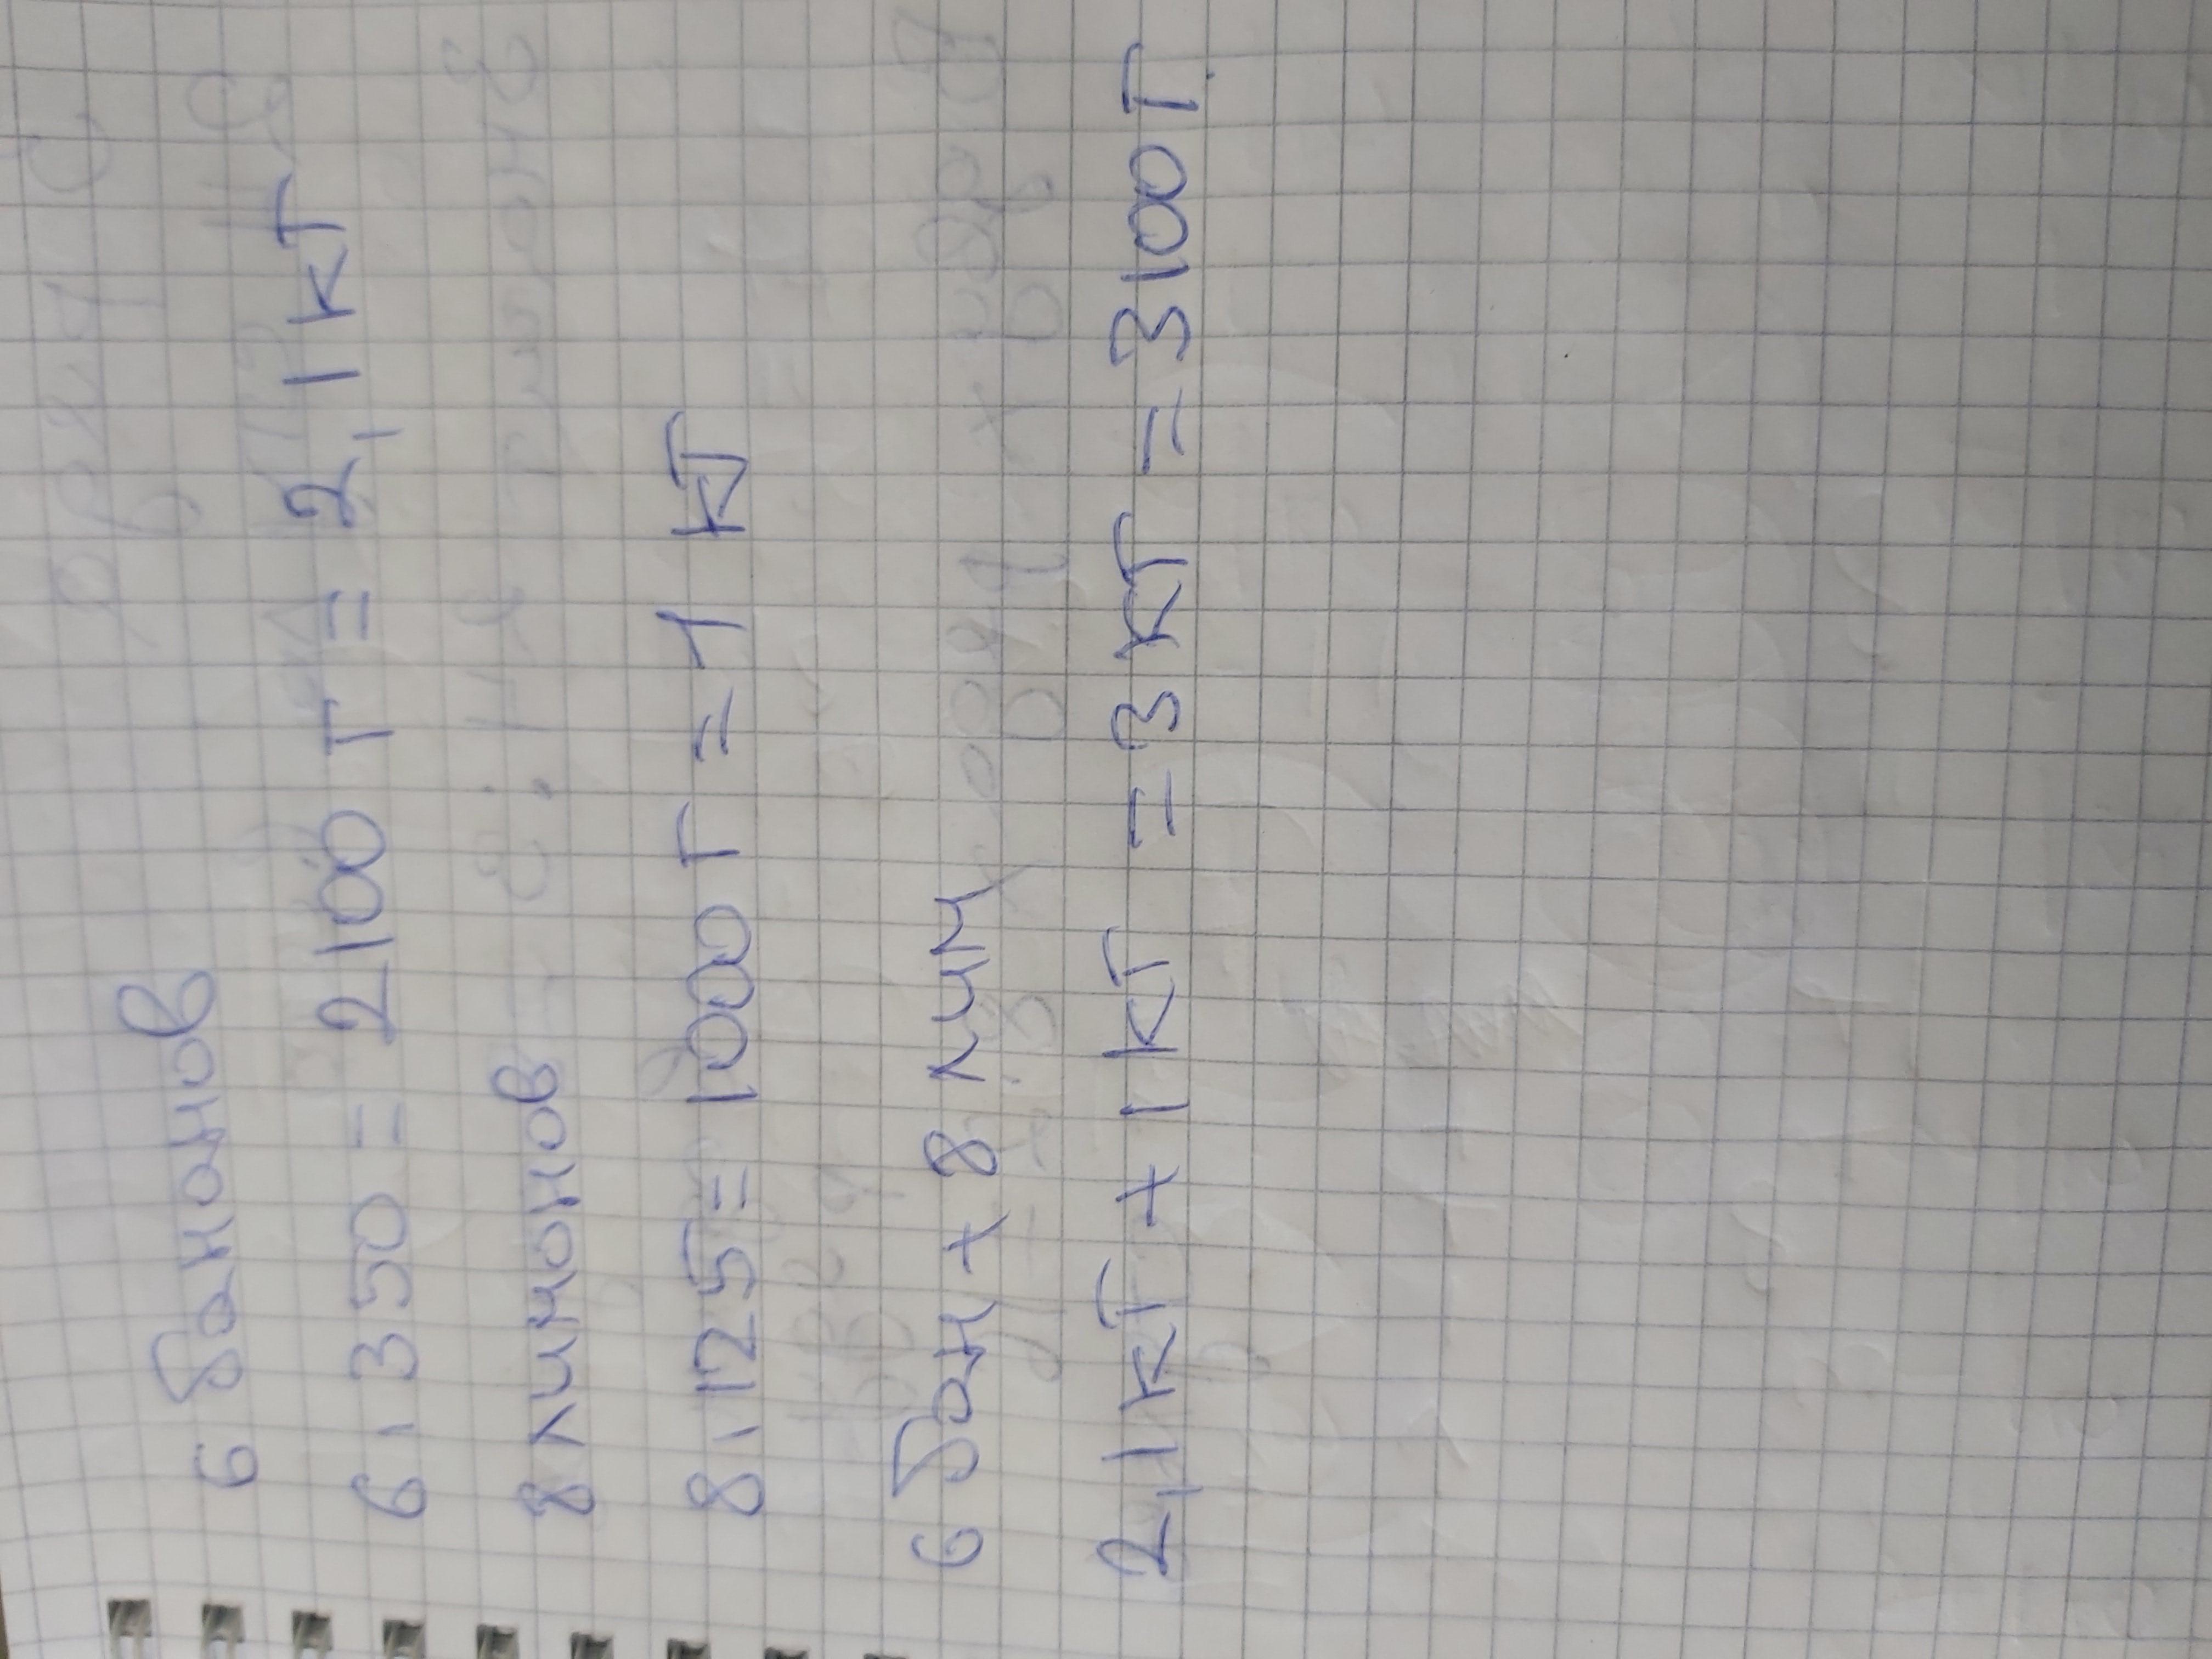 6 бананов
6 , 350 = 2100 г = 2,1 кг
8 лимонов
8 , 125 = 1000 г = 1 кг
6 бан + 8 лим
2,1 кг + 1 кг = 3 кг = 3100 г